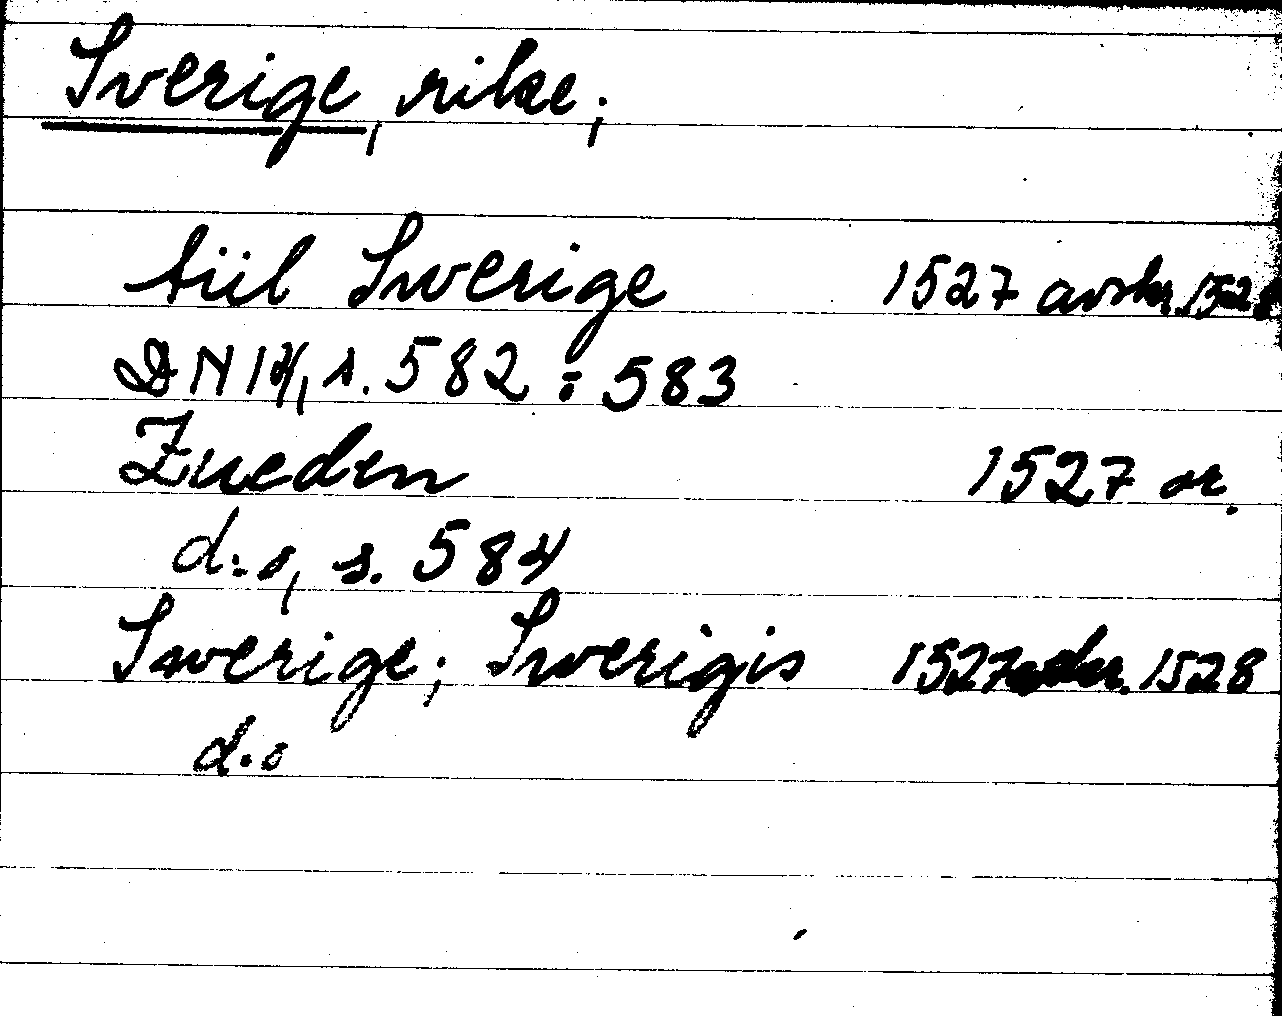 Sverige, rike;
tiil Swerige 1527 avskr. 1528
DN 14, s. 582 ; 583
Zueden 1527 or.
d:o, s. 584
Swerige; Swerigis 1527 avskr. 1528
d:o